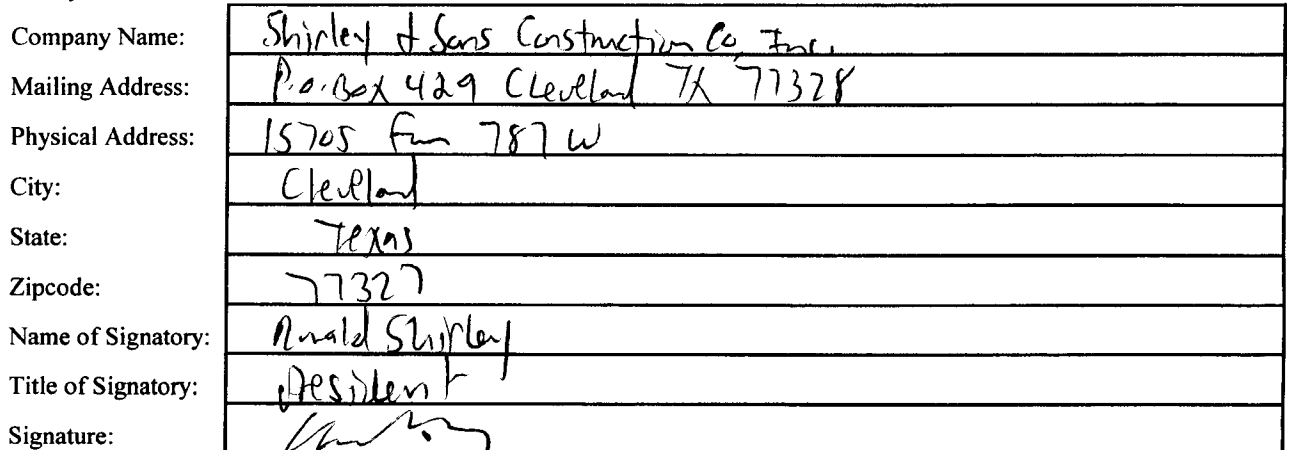 Company Name: Shirley & Sons Construction Co, Inc.
Mailing Address: P.O. Box 429 Cleveland TX 77328
Physical Address: 15705 Fm 787 W
City: Cleveland
State: Texas
Zipcode: 77327
Name of Signatory: Ronald Shirley
Title of Signatory: President
Signature: